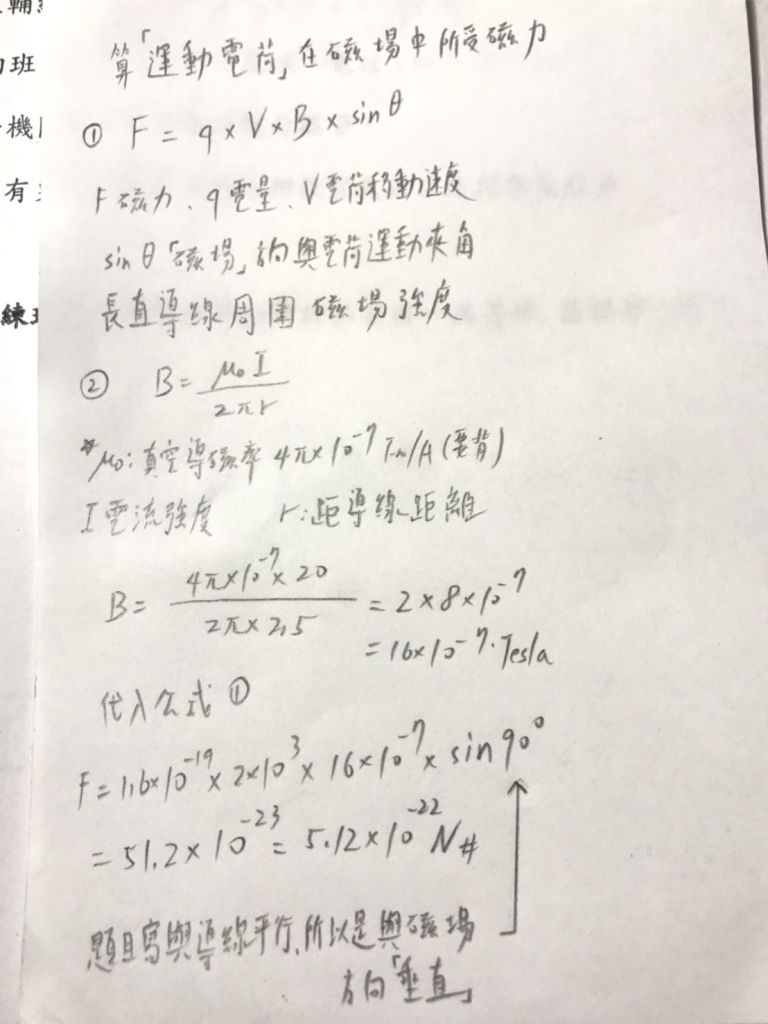 算「運動電荷」在磁場中所受磁力
① F = q × V × B × sin θ
F 磁力、q 電量、V 電荷移動速度
sin θ「磁場」方向與電荷運動夾角
長直導線周圍磁場強度
② B = μ₀ I / 2πr
*μ₀:真空導磁率 4π×10⁻⁷ Tm/A (要背)
I 電流強度 r:距導線距離
B = 4π×10⁻⁷×20 / 2π×2.5 = 2×8×10⁻⁷
= 16×10⁻⁷ Tesla
代入公式①
F = 1.6×10⁻¹⁹ × 2×10³ × 16×10⁻⁷ × sin 90°
= 51.2×10⁻²³ = 5.12×10⁻²² N #
題目寫與導線平行,所以是與磁場
方向「垂直」
班
機
有
練